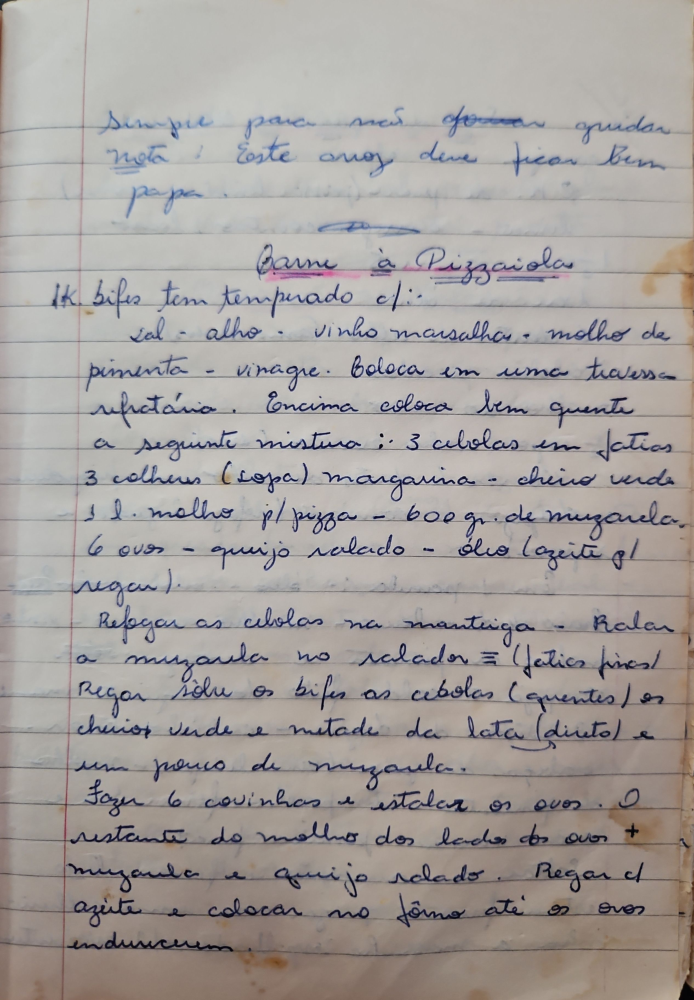 sempre para não grudar
nota: Este arroz deve ficar bem
papa.
Carne à Pizzaiola
1K. bifes bem temperado c/:-
sal - alho - vinho marsalha - molho de
pimenta - vinagre. Coloca em uma travessa
refratária. Encima coloca bem quente
a seguinte mistura:- 3 cebolas em fatias
3 colheres (sopa) margarina - cheiro verde
1 l. molho p/ pizza - 600 gr. de muzarela.
6 ovos - queijo ralado - óleo (azeite p/
regar).
Refogar as cebolas na manteiga - Ralar
a muzarela no ralador = (fatias finas)
Regar sôbre os bifes as cebolas (quentes) os
cheiros verde e metade da lata (direto) e
um pouco de muzarela.
Fazer 6 covinhas e estalar os ovos. O
restante do molho dos lados dos ovos +
muzarela e queijo ralado. Regar c/
azeite e colocar no fôrno até os ovos
endurecerem.